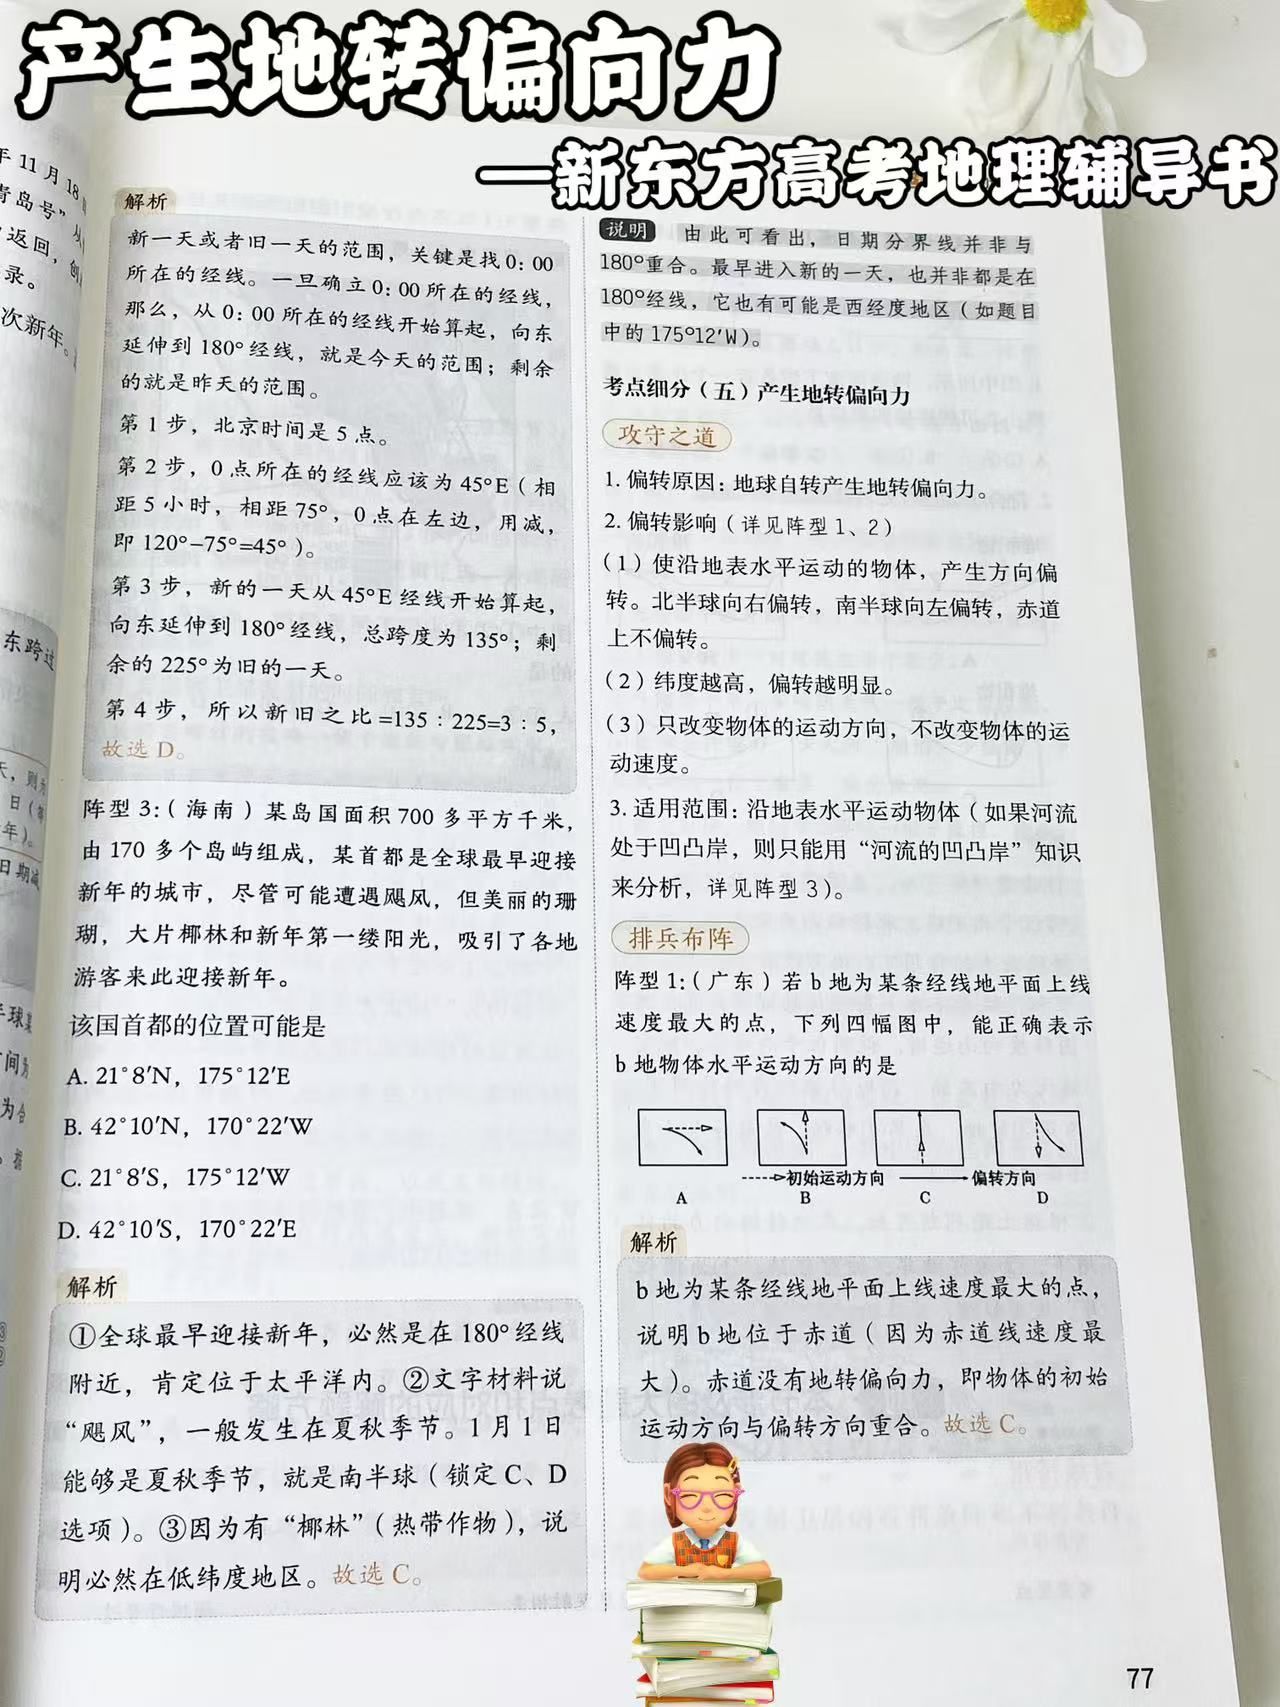 产生地转偏向力
—新东方高考地理辅导书
年11月18
青岛号”
返回，创
录。
次新年。
东跨过
天，则
日（
年）。
日期减
半球
时间
为合
解析
新一天或者旧一天的范围，关键是找0：00
所在的经线。一旦确立0：00所在的经线，
那么，从0：00所在的经线开始算起，向东
延伸到180°经线，就是今天的范围；剩余
的就是昨天的范围。
第1步，北京时间是5点。
第2步，0点所在的经线应该为45°E（相
距5小时，相距75°，0点在左边，用减，
即120°-75°=45°）。
第3步，新的一天从45°E经线开始算起，
向东延伸到180°经线，总跨度为135°；剩
余的225°为旧的一天。
第4步，所以新旧之比=135：225=3：5，
故选D。
阵型3:（海南）某岛国面积700多平方千米，
由170多个岛屿组成，某首都是全球最早迎接
新年的城市，尽管可能遭遇飓风，但美丽的珊
瑚，大片椰林和新年第一缕阳光，吸引了各地
游客来此迎接新年。
该国首都的位置可能是
A. 21°8′N，175°12′E
B. 42°10′N，170°22′W
C. 21°8′S，175°12′W
D. 42°10′S，170°22′E
解析
①全球最早迎接新年，必然是在180°经线
附近，肯定位于太平洋内。②文字材料说
“飓风”，一般发生在夏秋季节。1月1日
能够是夏秋季节，就是南半球（锁定C、D
选项）。③因为有“椰林”（热带作物），说
明必然在低纬度地区。故选C。
说明 由此可看出，日期分界线并非与
180°重合。最早进入新的一天，也并非都是在
180°经线，它也有可能是西经度地区（如题目
中的175°12′W）。
考点细分（五）产生地转偏向力
攻守之道
1. 偏转原因：地球自转产生地转偏向力。
2. 偏转影响（详见阵型1、2）
（1）使沿地表水平运动的物体，产生方向偏
转。北半球向右偏转，南半球向左偏转，赤道
上不偏转。
（2）纬度越高，偏转越明显。
（3）只改变物体的运动方向，不改变物体的运
动速度。
3. 适用范围：沿地表水平运动物体（如果河流
处于凹凸岸，则只能用“河流的凹凸岸”知识
来分析，详见阵型3）。
排兵布阵
阵型1:（广东）若b地为某条经线地平面上线
速度最大的点，下列四幅图中，能正确表示
b地物体水平运动方向的是
初始运动方向 偏转方向
A B C D
解析
b地为某条经线地平面上线速度最大的点，
说明b地位于赤道（因为赤道线速度最
大）。赤道没有地转偏向力，即物体的初始
运动方向与偏转方向重合。故选C。
77